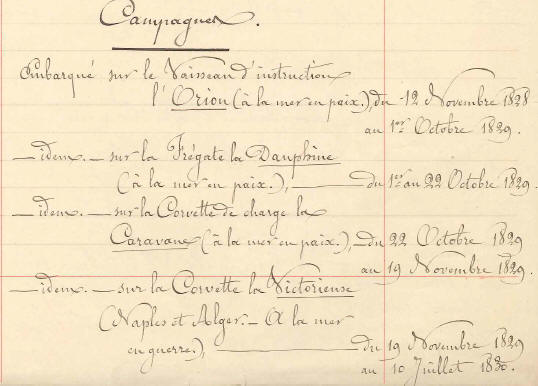 Campagnes.
Embarqué sur le Vaisseau d'instruction
l'Orion (à la mer en paix.), du 12 Novembre 1828
au 1er Octobre 1829.
— idem. — sur la Frégate la Dauphine
(à la mer en paix.), — du 1er au 22 Octobre 1829.
— idem. — sur la Corvette de charge la
Caravane (à la mer en paix.), — du 22 Octobre 1829
au 19 Novembre 1829.
— idem. — sur la Corvette la Victorieuse
(Naples et Alger. — A la mer
en guerre.), — du 19 Novembre 1829
au 10 Juillet 1830.